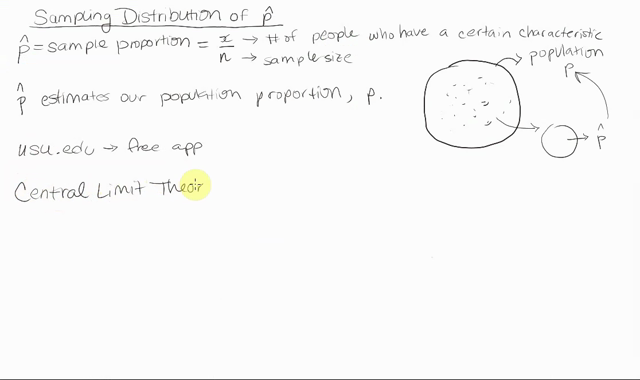 Sampling Distribution of p̂
p̂ = sample proportion = x/n → # of people who have a certain characteristic
→ sample size
population
p
p̂
p̂ estimates our population proportion, p.
usu.edu → free app
Central Limit Theor